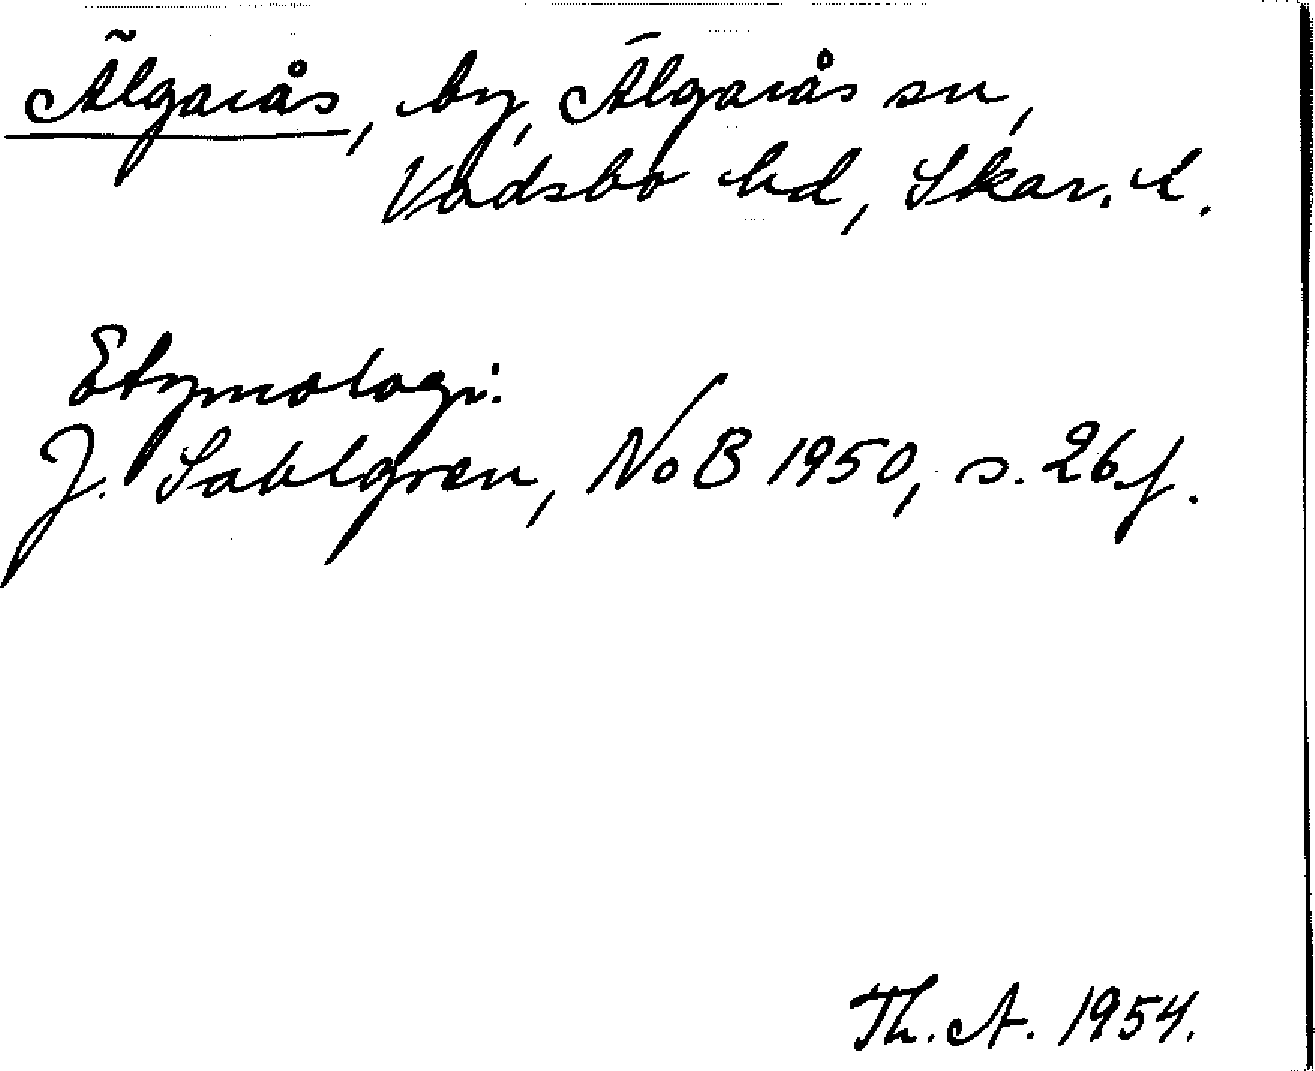 Älgarås, by, Älgarås sn,
Vadsbo hd, Skar. l.
Etymologi:
J. Sahlgren, NoB 1950, s. 26 f.
Th. A. 1954.